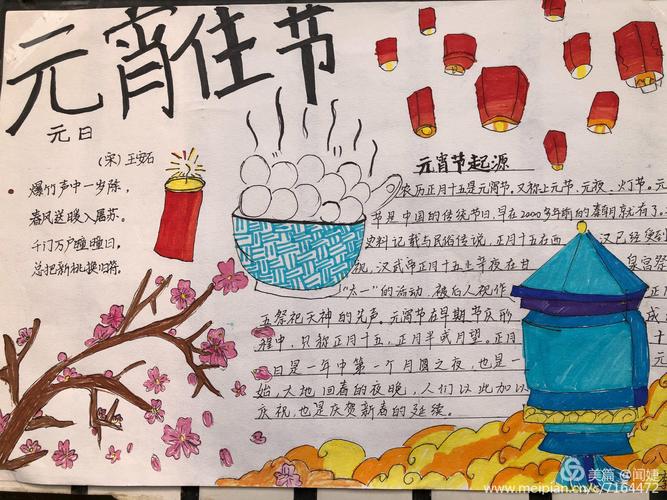 元宵佳节
元日
(宋) 王安石
爆竹声中一岁除,
春风送暖入屠苏。
千门万户曈曈日,
总把新桃换旧符。
元宵节起源
农历正月十五是元宵节,又称上元节、元夜、灯节。元
节是中国的传统节日,早在2000多年前的春
史料记载与民俗传说,正月十五在西 汉已经受到
视,汉武帝正月十五上辛夜在甘 泉宫祭
"太一"的活动,被后人视作 正月
五祭祀天神的先声。元宵节在早期节庆形 成
程中,只称正月十五,正月半或月望。正月 十
日是一年中第一个月圆之夜,也是一
始,大地回春的夜晚,人们以此加以
庆祝,也是庆贺新春的延续。
美篇 @闻婕
www.meipian.cn/c/7164472